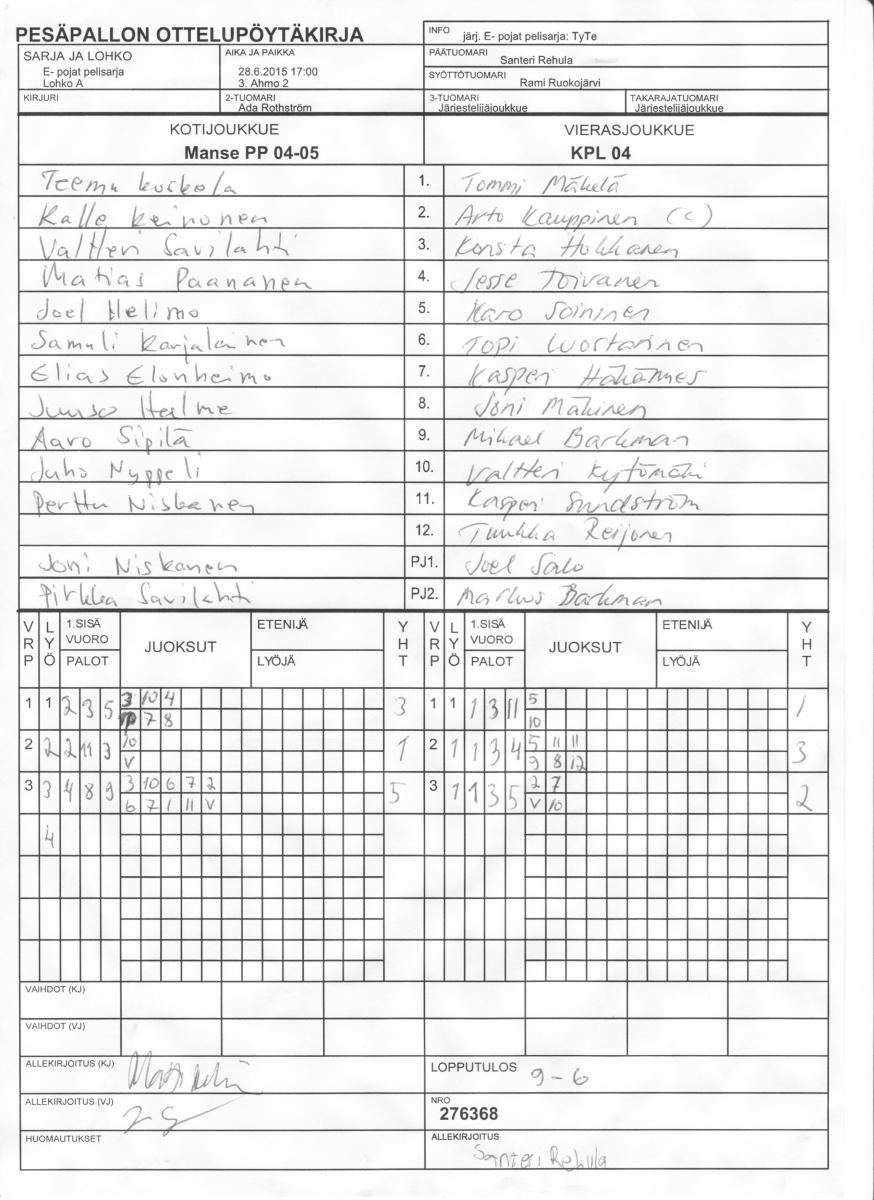 PESÄPALLON OTTELUPÖYTÄKIRJA
INFO järj. E- pojat pelisarja: TyTe
SARJA JA LOHKO
E- pojat pelisarja
Lohko A
AIKA JA PAIKKA
28.6.2015 17:00
3. Ahmo 2
PÄÄTUOMARI
Santeri Rehula
SYÖTTÖTUOMARI
Rami Ruokojärvi
KIRJURI
2-TUOMARI
Ada Rothström
3-TUOMARI
Järjestelijäjoukkue
TAKARAJATUOMARI
Järjestelijäjoukkue
KOTIJOUKKUE VIERASJOUKKUE
Manse PP 04-05 KPL 04
Teemu Kuskola 1. Tommi Mäkelä
Kalle Keinonen 2. Arto Kauppinen (c)
Valtteri Savilahti 3. Konsta Hokkanen
Matias Paananen 4. Jesse Toivanen
Joel Helimo 5. Karo Soininen
Samuli Karjalainen 6. Topi Luostarinen
Elias Elonheimo 7. Kasperi Hakamies
Juuso Helme 8. Joni Mäkinen
Aaro Sipilä 9. Mikael Barkman
Juho Nyppeli 10. Valtteri Kytömäki
Perttu Niskanen 11. Kasperi Sundström
12. Tuukka Reijonen
Joni Niskanen PJ1. Joel Salo
Pirkka Savilahti PJ2. Markus Barkman
VRP LYÖ 1.SISÄ VUORO PALOT JUOKSUT ETENIJÄ LYÖJÄ YHT VRP LYÖ 1.SISÄ VUORO PALOT JUOKSUT ETENIJÄ LYÖJÄ YHT
1 1 2 3 5 3 10 4 3 1 1 1 3 11 5 1
10 7 8 10
2 2 2 11 3 10 1 2 1 1 3 4 5 11 11 3
V 9 8 12
3 3 4 8 9 3 10 6 7 2 5 3 1 1 3 5 2 7 2
6 7 1 11 V V 10
4
VAIHDOT (KJ)
VAIHDOT (VJ)
ALLEKIRJOITUS (KJ)
LOPPUTULOS 9-6
ALLEKIRJOITUS (VJ)
NRO
276368
HUOMAUTUKSET
ALLEKIRJOITUS
Santeri Rehula